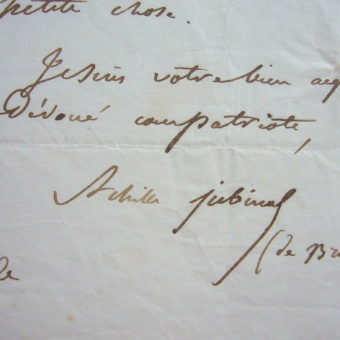 petite chose.
Je suis votre bien
dévoué compatriote,
Achille Jubinal
(de